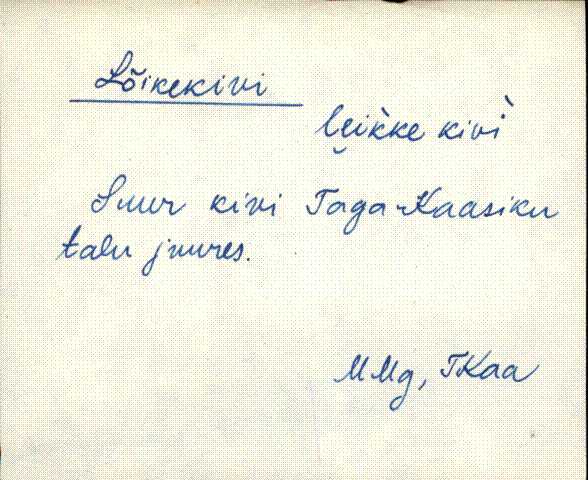 Lõikekivi
lei̮k̀ke kivì
Suur kivi Taga-Kaasiku
talu juures.
MMg, TKaa